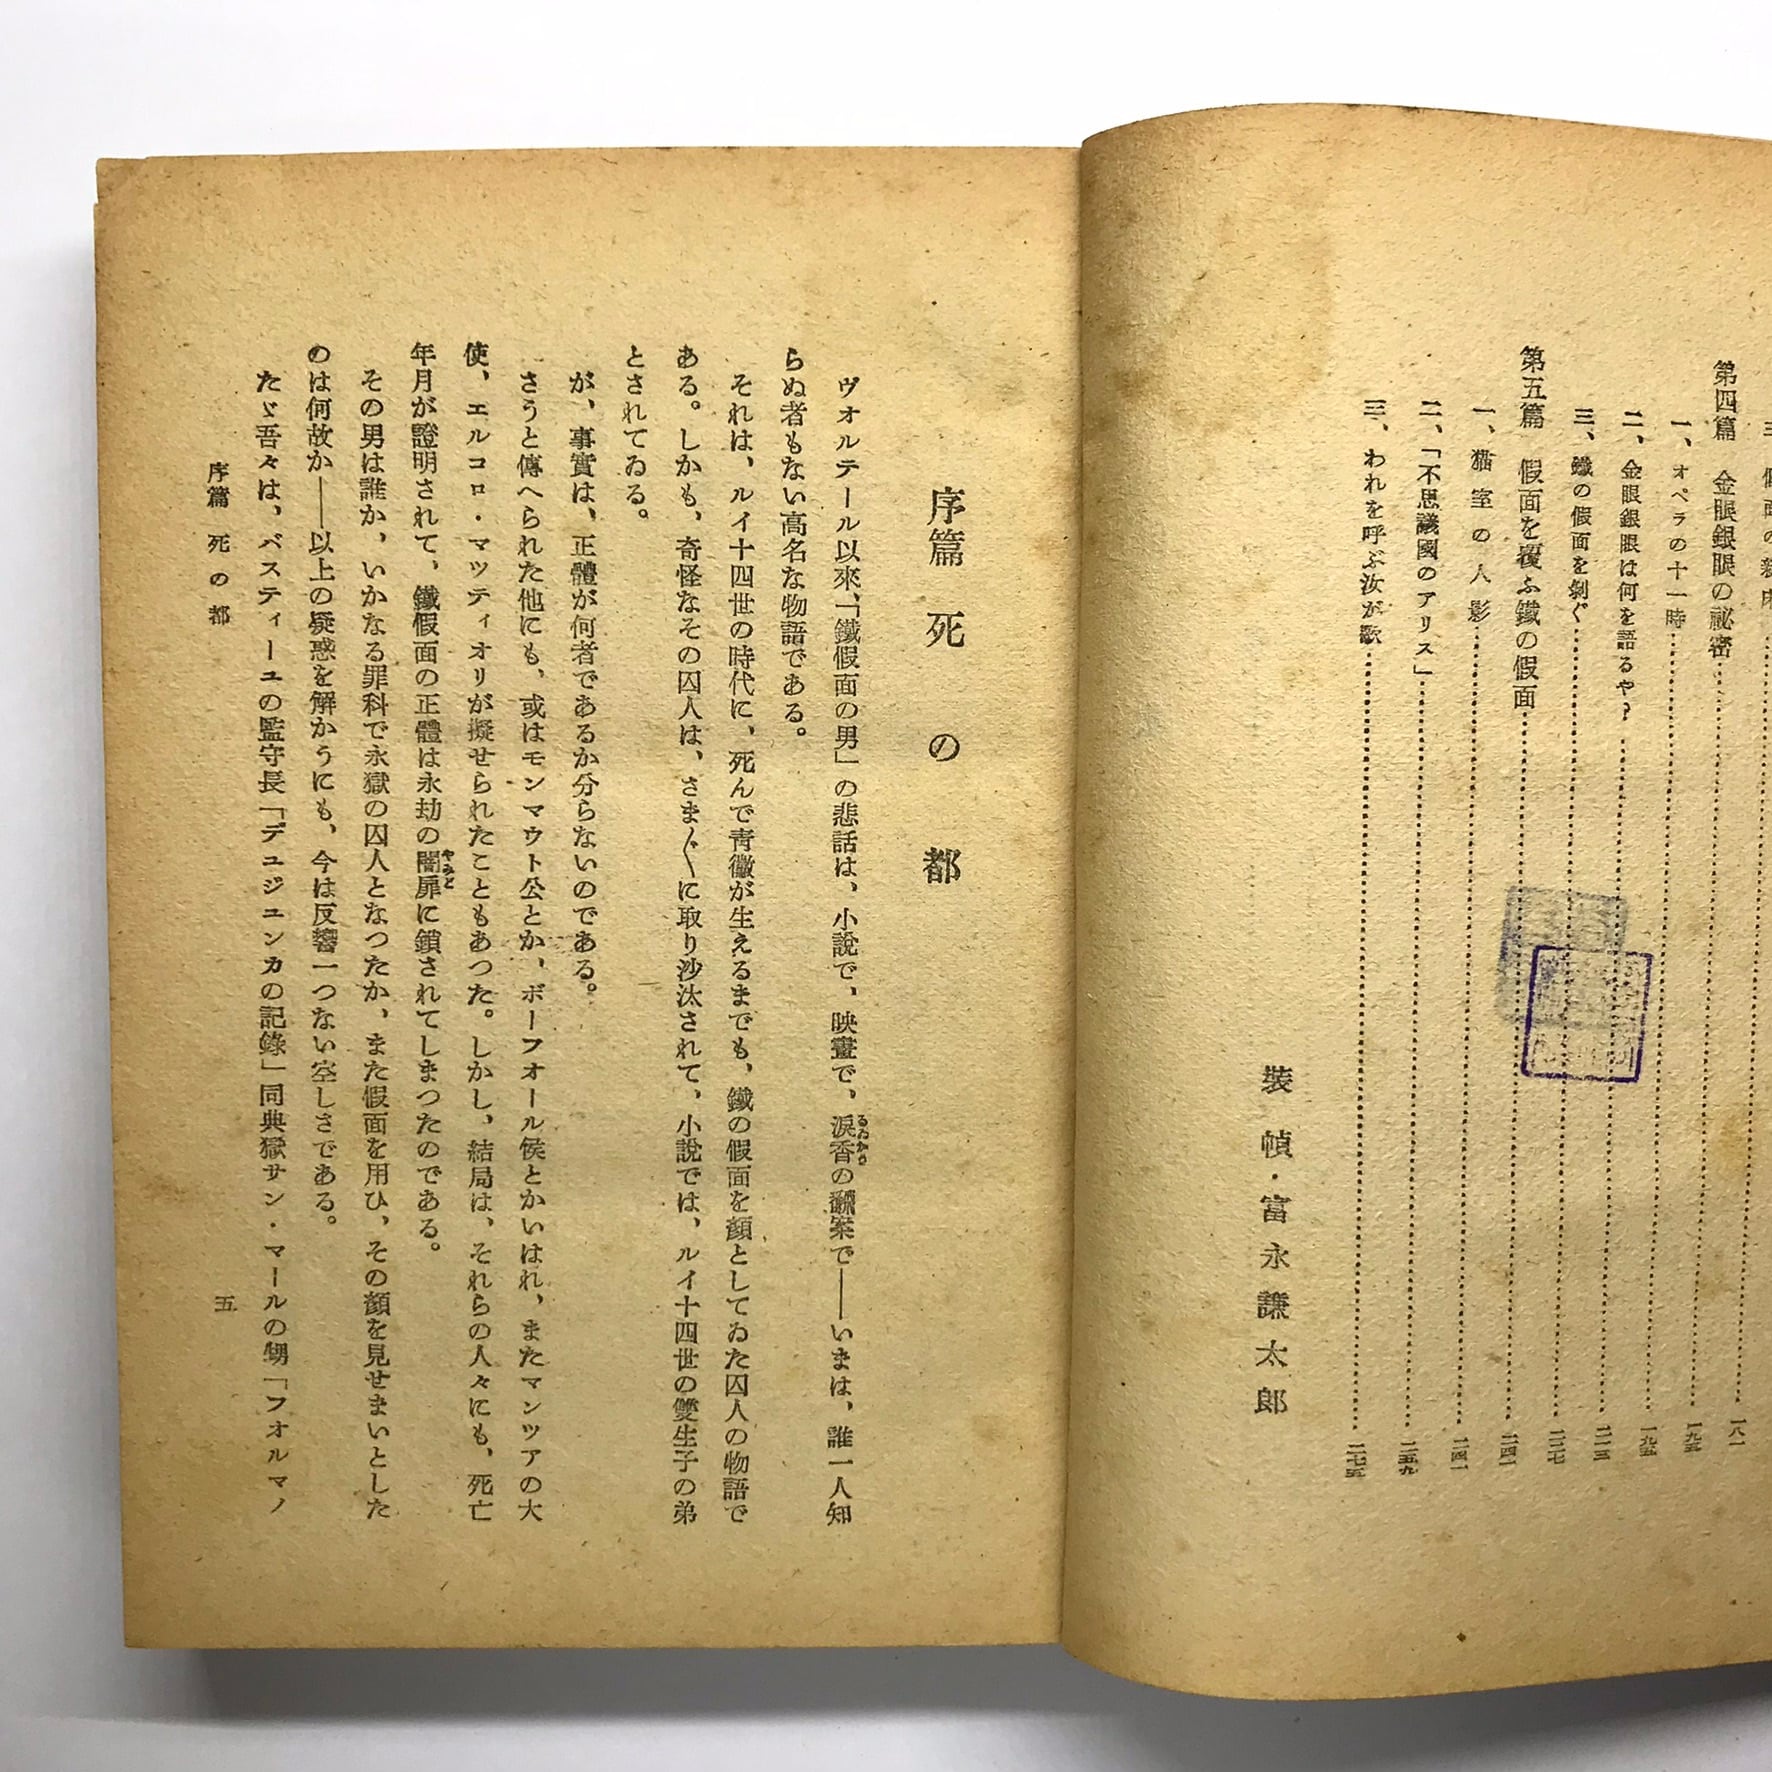 第四篇　金眼銀眼の祕密……一八一
一、オペラの十一時……一九五
二、金眼銀眼は何を語るや？……一九五
三、鐵の假面を剝ぐ……二一三
第五篇　假面を覆ふ鐵の假面……二二七
一、猫室の人影……二四一
二、「不思議國のアリス」……二四一
三、われを呼ぶ汝が歌……二五九
二七五
裝幀・富永謙太郎
序篇　死の都
ヴオルテール以來、「鐵假面の男」の悲話は、小說で、映畫で、淚香の飜案で――いまは、誰一人知
るゐかう
らぬ者もない高名な物語である。
それは、ルイ十四世の時代に、死んで靑黴が生えるまでも、鐵の假面を顏としてゐた囚人の物語で
ある。しかも、奇怪なその囚人は、さま〲に取り沙汰されて、小說では、ルイ十四世の雙生子の弟
とされてゐる。
が、事實は、正體が何者であるか分らないのである。
さうと傳へられた他にも、或はモンマウト公とか、ボーフオール侯とかいはれ、またマンツアの大
使、エルコロ・マツティオリが擬せられたこともあつた。しかし、結局は、それらの人々にも、死亡
年月が證明されて、鐵假面の正體は永劫の闇扉に鎖されてしまつたのである。
やみど
その男は誰か、いかなる罪科で永獄の囚人となつたか、また假面を用ひ、その顏を見せまいとした
のは何故か――以上の疑惑を解かうにも、今は反響一つない空しさである。
たゞ吾々は、バスティーユの監守長「デュジュンカの記錄」同典獄サン・マールの甥「フオルマノ
序篇　死の都
五